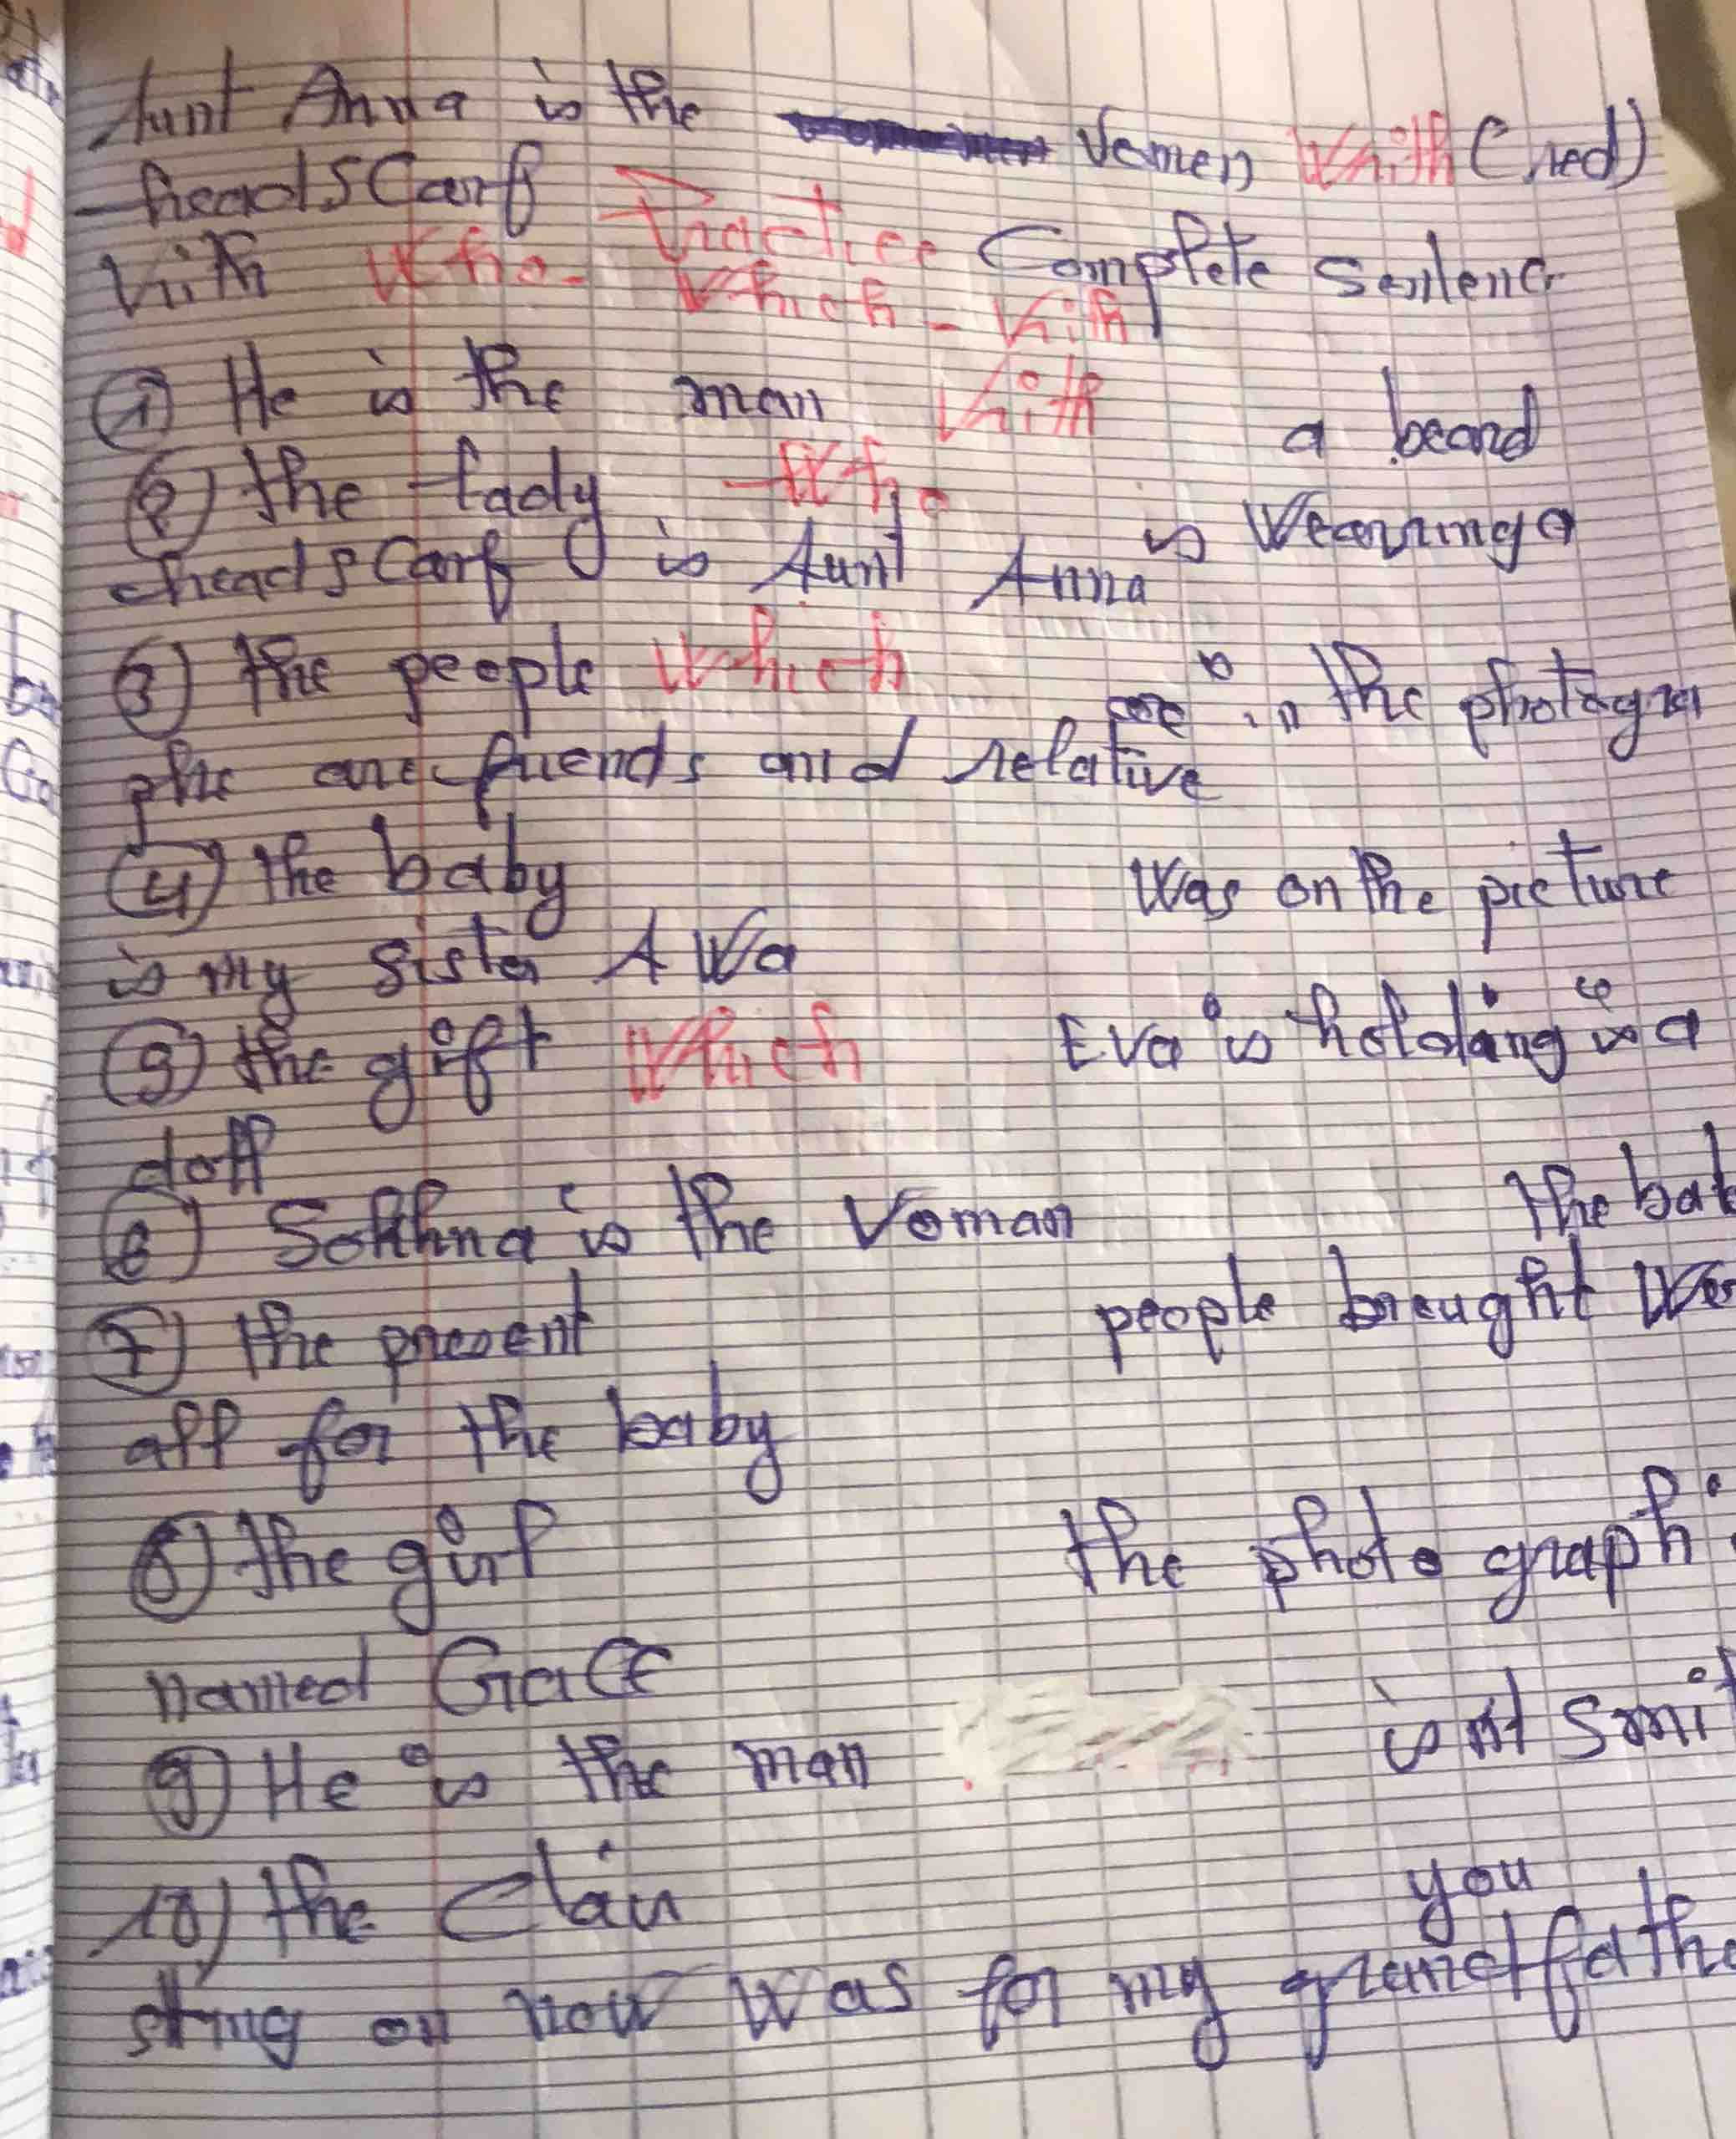 Aunt Anna is the Vomen With (red)
headscarf Practice Complete Sentence
With Who - Which - With
① He is the man With a beard
② the lady Who is Wearing a
headscarf is Aunt Anna
③ the people Which are in the photogra
phe are friends and relative
④ the baby Was on the picture
is my sister AWa
⑤ the gift Which Eva is hololaing is a
doll
⑥ Sokhna is the Voman the bab
⑦ the present people brought Wer
all for the baby
⑧ the girl the photo graph i
named Gace
⑨ He is the man is nt Smi
10) the Clair you
string on now was for my grandfathe